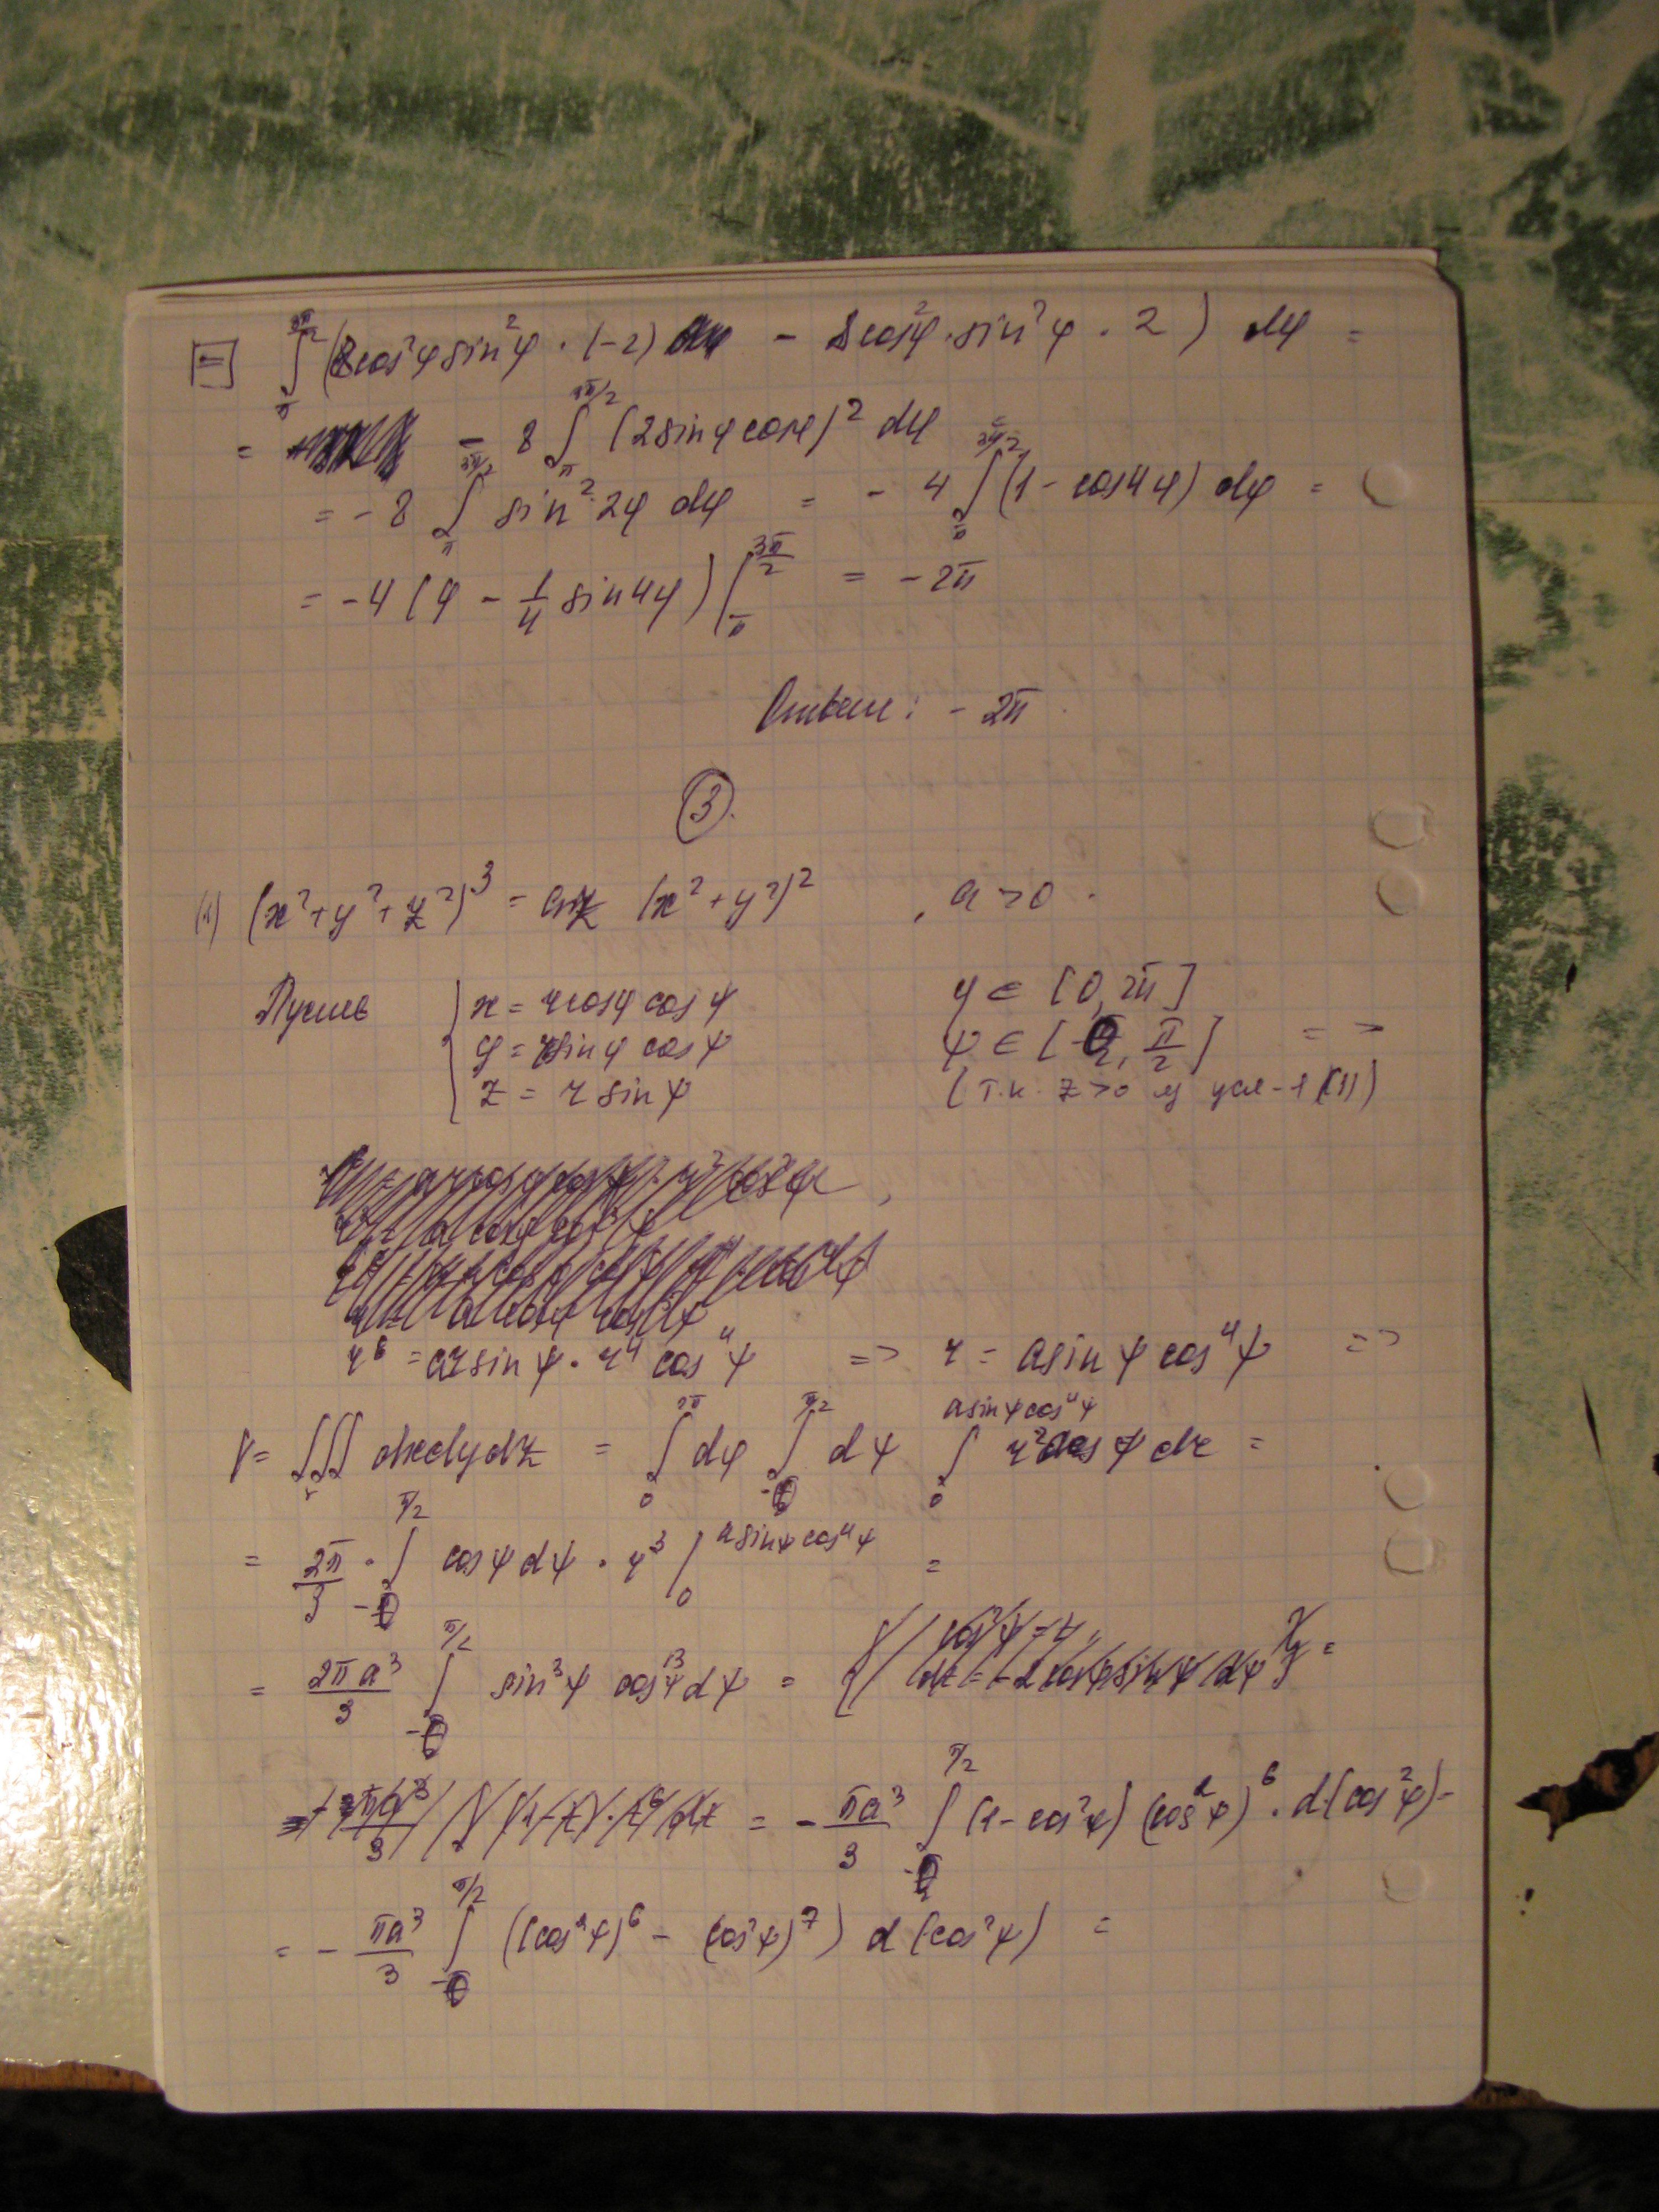 = ∫_π^{3π/2} (8cos²φ sin²φ · (-2) - 8cos²φ · sin²φ · 2) dφ =
= - 8 ∫_π^{3π/2} (2sinφ cosφ)² dφ =
= - 8 ∫_π^{3π/2} sin²2φ dφ = - 4 ∫_π^{3π/2} (1 - cos4φ) dφ =
= -4 (φ - 1/4 sin4φ) |_π^{3π/2} = - 2π
Ответ: - 2π.
3.
(1) (x²+y²+z²)³ = az (x²+y²)², a>0.
Пусть { x = r cosφ cosψ φ ∈ [0, 2π]
y = r sinφ cosψ ψ ∈ [0, π/2] =>
z = r sinψ (т.к. z>0 из усл-я (1))
r⁶ = ar sinψ · r⁴ cos⁴ψ => r = a sinψ cos⁴ψ =>
V = ∫∫∫_V dxdydz = ∫_0^{2π} dφ ∫_0^{π/2} dψ ∫_0^{a sinψ cos⁴ψ} r² cosψ dr =
= 2π/3 · ∫_0^{π/2} cosψ dψ · r³ |_0^{a sinψ cos⁴ψ} =
= 2πa³/3 ∫_0^{π/2} sin³ψ cos¹³ψ dψ =
= - πa³/3 ∫_0^{π/2} (1 - cos²ψ) (cos²ψ)⁶ · d(cos²ψ) =
= - πa³/3 ∫_0^{π/2} ((cos²ψ)⁶ - (cos²ψ)⁷) d(cos²ψ) =